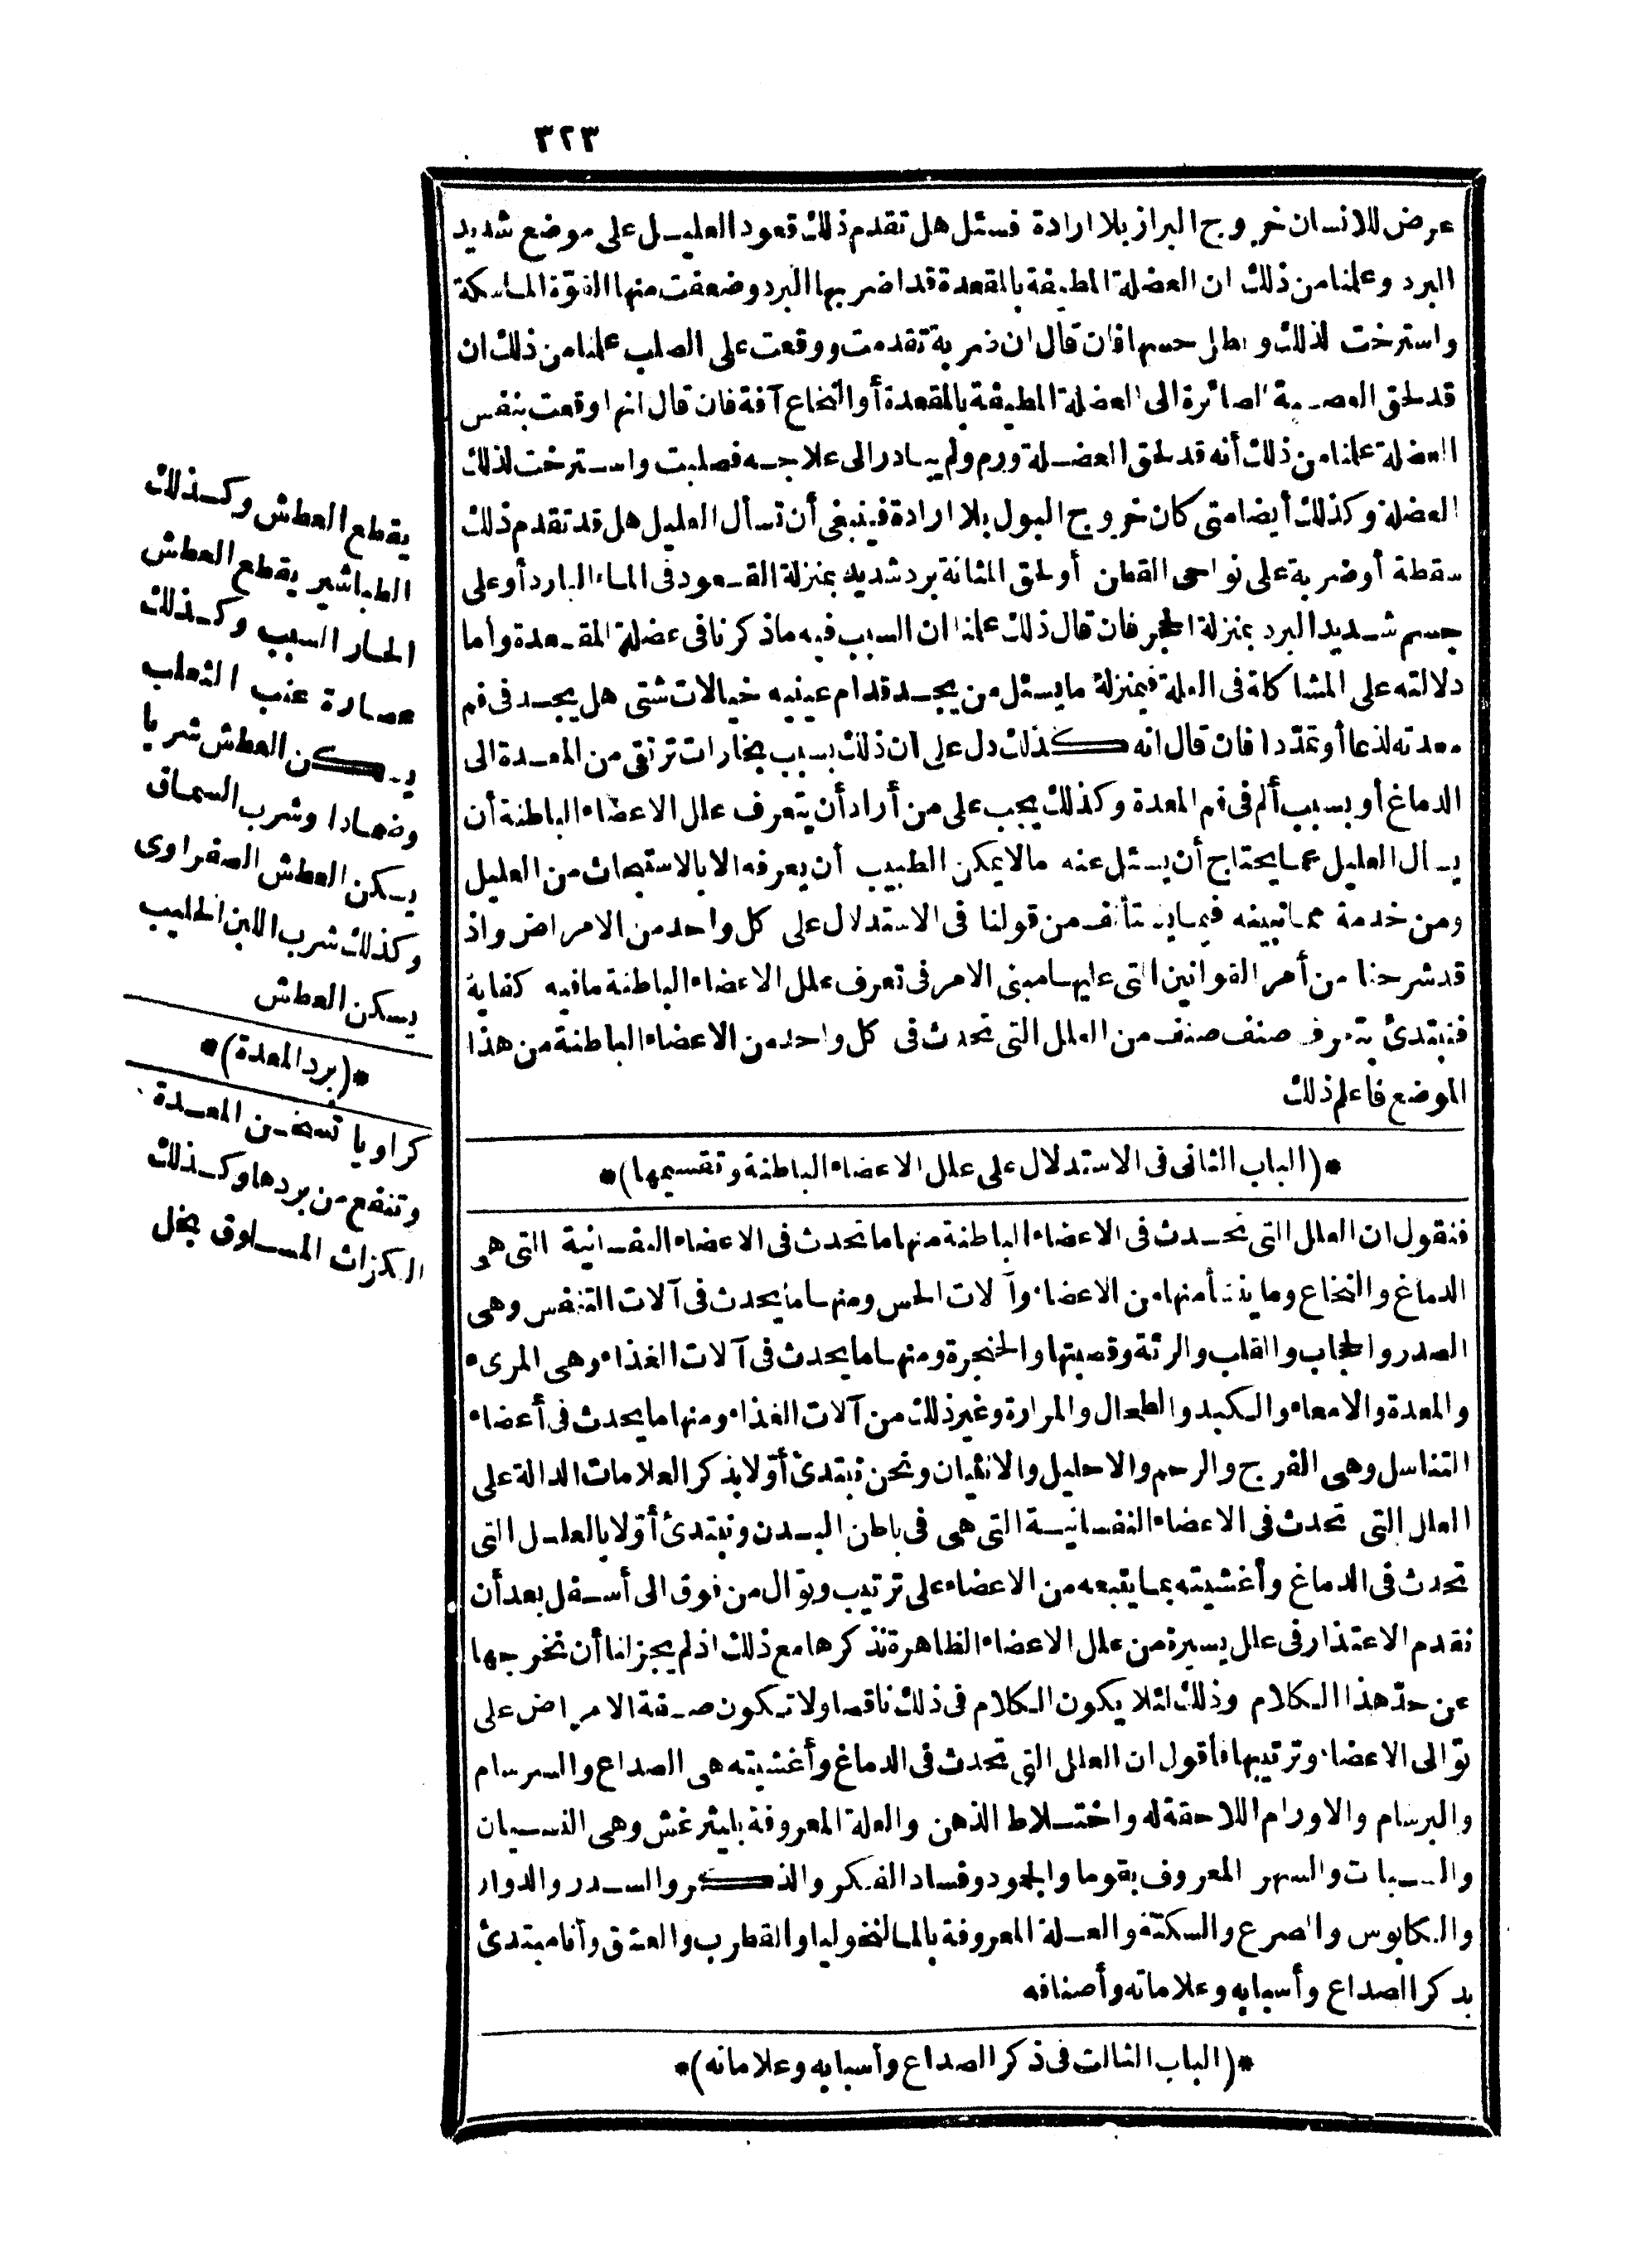 ٣٢٣
عرض للانسان خروج البراز بلا ارادة فسئل هل تقدم ذلك قعود العليل على موضع شديد
البرد وعلمنا من ذلك ان العضلة المطيفة بالمقعدة قد اضر بها البرد وضعفت منها القوّة الماسكة
واسترخت لذلك وبطل حسها فان قال ان ضربة تقدمت ووقعت على الصلب علمنا من ذلك ان
قد لحق العصبة الصائرة الى العضلة المطيفة بالمقعدة أو النخاع آفة فان قال انها وقعت بنفس
العضلة علمنا من ذلك أنه قد لحق العضلة ورم ولم يبادر الى علاجه فصلبت واسترخت لذلك
العضلة وكذلك أيضا متى كان خروج البول بلا ارادة فينبغى أن تسأل العليل هل قد تقدم ذلك
سقطة أو ضربة على نواحى القطن أو لحق المثانة برد شديد بمنزلة القعود فى الماء البارد أو على
جسم شديد البرد بمنزلة الحجر فان قال ذلك علمنا ان السبب فيه ما ذكرنا فى عضلة المقعدة وأما
دلالته على المشاكاة فى العلة فبمنزلة ما يسئل من يجد قدام عينيه خيالات شتى هل يجد فى فم
معدته لذعا أو تمدّدا فان قال انه كذلك دل على ان ذلك بسبب بخارات ترتقى من المعدة الى
الدماغ أو بسبب ألم فى فم المعدة وكذلك يجب على من أراد أن يتعرف علل الاعضاء الباطنة أن
يسأل العليل عما يحتاج أن يسئل عنه مالا يمكن الطبيب أن يعرفه الا بالاستبحاث من العليل
ومن خدمة مما نبينه فيما يستأنف من قولنا فى الاستدلال على كل واحد من الامراض واذ
قد شرحنا من أمر القوانين التى عليها مبنى الامر فى تعرف علل الاعضاء الباطنة ما فيه كفاية
فنبتدئ بتعرف صنف صنف من العلل التى تحدث فى كل واحد من الاعضاء الباطنة من هذا
الموضع فاعلم ذلك
*(الباب الثانى فى الاستدلال على علل الاعضاء الباطنة وتقسيمها)*
فنقول ان العلل التى تحدث فى الاعضاء الباطنة منها ما تحدث فى الاعضاء النفسانية التى هى
الدماغ والنخاع وما ينشأ منها من الاعضاء وآلات الحس ومنها ما يحدث فى آلات التنفس وهى
الصدر والحجاب والقلب والرئة وقصبتها والحنجرة ومنها ما يحدث فى آلات الغذاء وهى المرىء
والمعدة والامعاء والكبد والطحال والمرارة وغير ذلك من آلات الغذاء ومنها ما يحدث فى أعضاء
التناسل وهى الفرج والرحم والاحليل والانثيان ونحن نبتدئ أوّلا بذكر العلامات الدالة على
العلل التى تحدث فى الاعضاء النفسانية التى هى فى باطن البدن ونبتدئ أوّلا بالعلل التى
تحدث فى الدماغ وأغشيته بما يتبعه من الاعضاء على ترتيب وتوال من فوق الى أسفل بعد أن
نقدم الاعتذار فى علل يسيرة من علل الاعضاء الظاهرة نذكرها مع ذلك اذ لم يجز لنا أن نخرجها
عن حدّ هذا الكلام وذلك لئلا يكون الكلام فى ذلك ناقصا ولا تكون صفة الامراض على
توّالى الاعضاء وترتيبها فأقول ان العلل التى تحدث فى الدماغ وأغشيته هى الصداع والسرسام
والبرسام والاورام اللاحقة له واختلاط الذهن والعلة المعروفة بليثرغش وهى النسيان
والسبات والسهر المعروف بقوما والجمود وفساد الفكر والذكر والسدر والدوار
والكابوس والصرع والسكتة والعلة المعروفة بالمالنخوليا والقطرب والعشق وأنا مبتدئ
بذكر الصداع وأسبابه وعلاماته وأصنافه
*(الباب الثالث فى ذكر الصداع وأسبابه وعلاماته)*
يقطع العطش وكذلك
الطباشير يقطع العطش
الحار السبب وكذلك
عصارة عنب الثعلب
يسكن العطش شربا
وضمادا وشرب السماق
يسكن العطش الصفراوى
وكذلك شرب اللبن الحليب
يسكن العطش
*(برد المعدة)*
كراويا تسخن المعدة
وتنفع من بردها وكذلك
الكراث المسلوق بخل